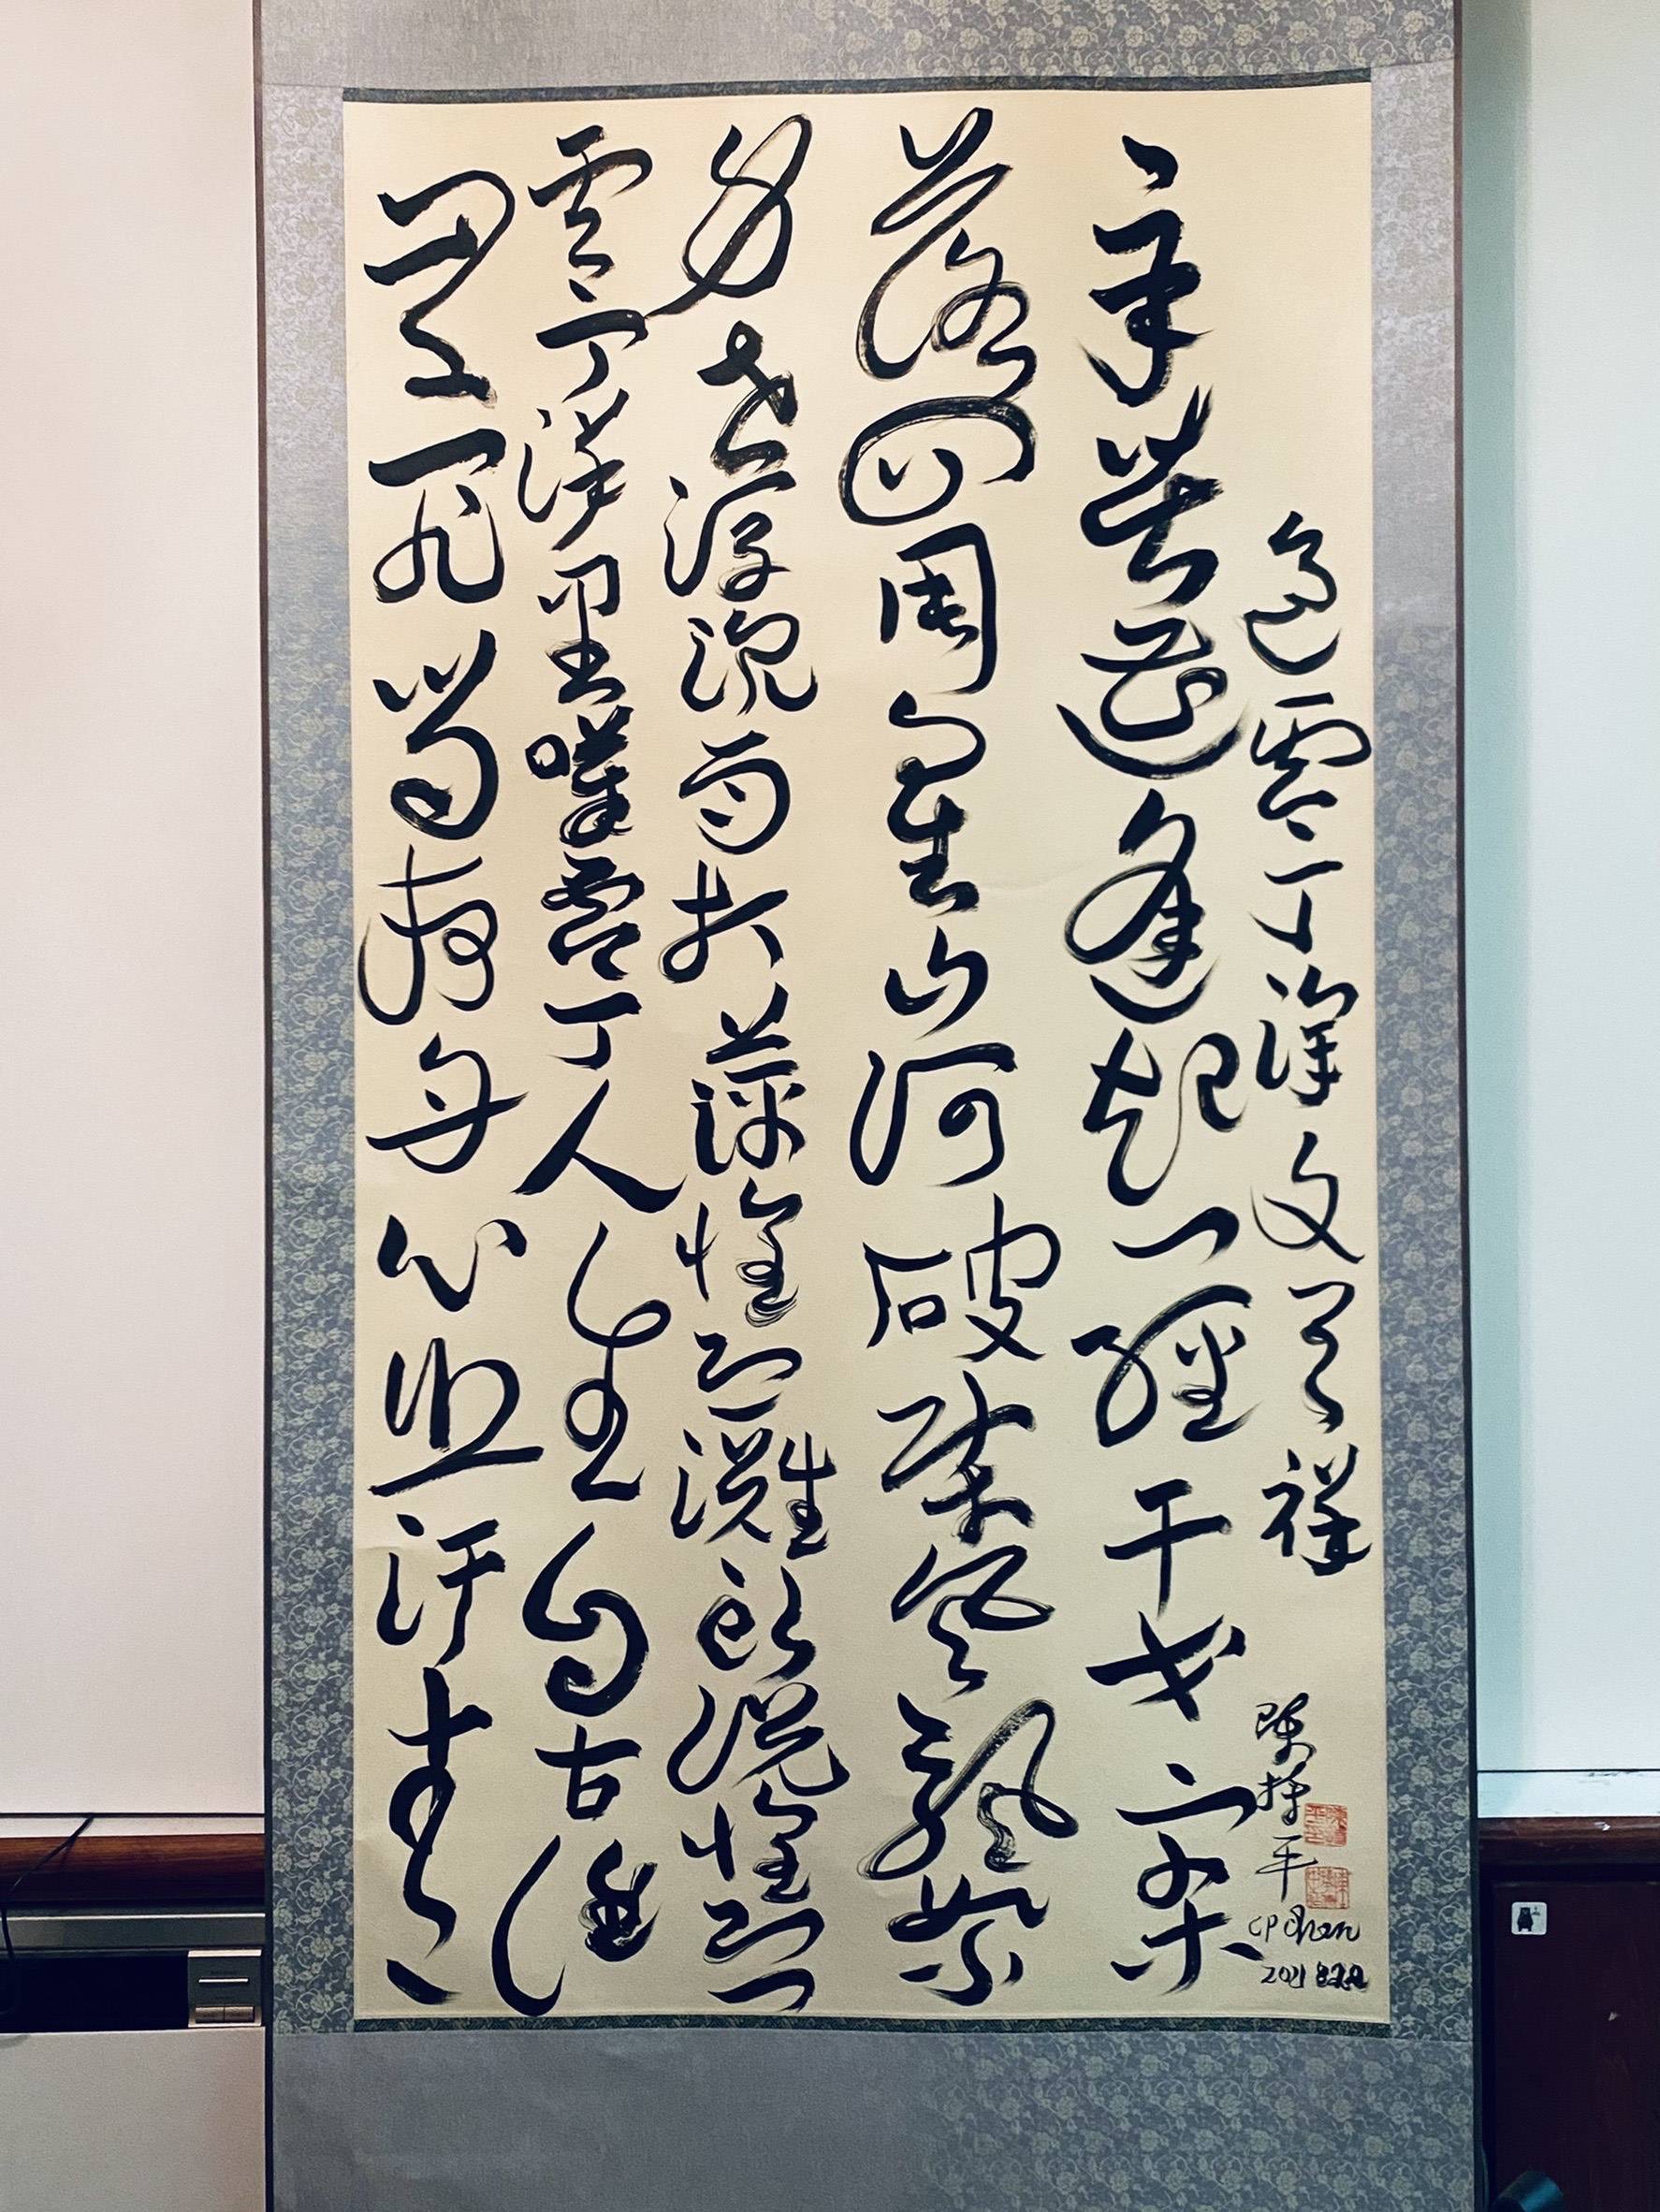 過零丁洋 文天祥
辛苦遭逢起一經干戈寥
落四周星山河破碎風飄絮
身世浮沉雨打萍惶恐灘頭說惶恐
零丁洋里嘆零丁人生自古誰
無死留取丹心照汗青
陳持平
CP Chen
2021